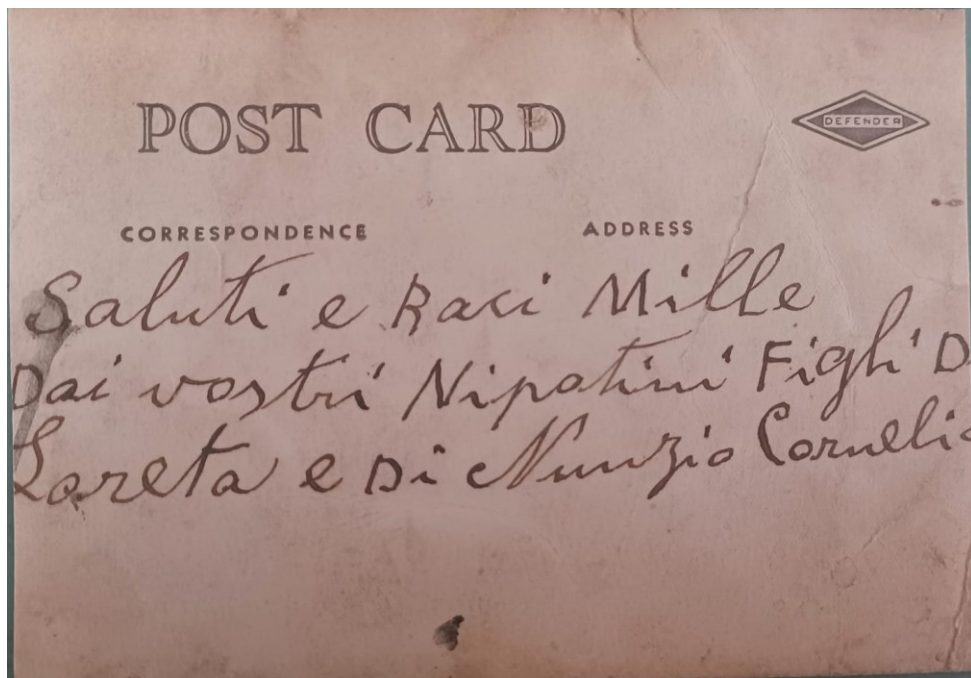 POST CARD
DEFENDER
CORRESPONDENCE
ADDRESS
Saluti e Baci Mille
Dai vostri Nipotini Figli D
Loreta e Di Nunzio Cornelio